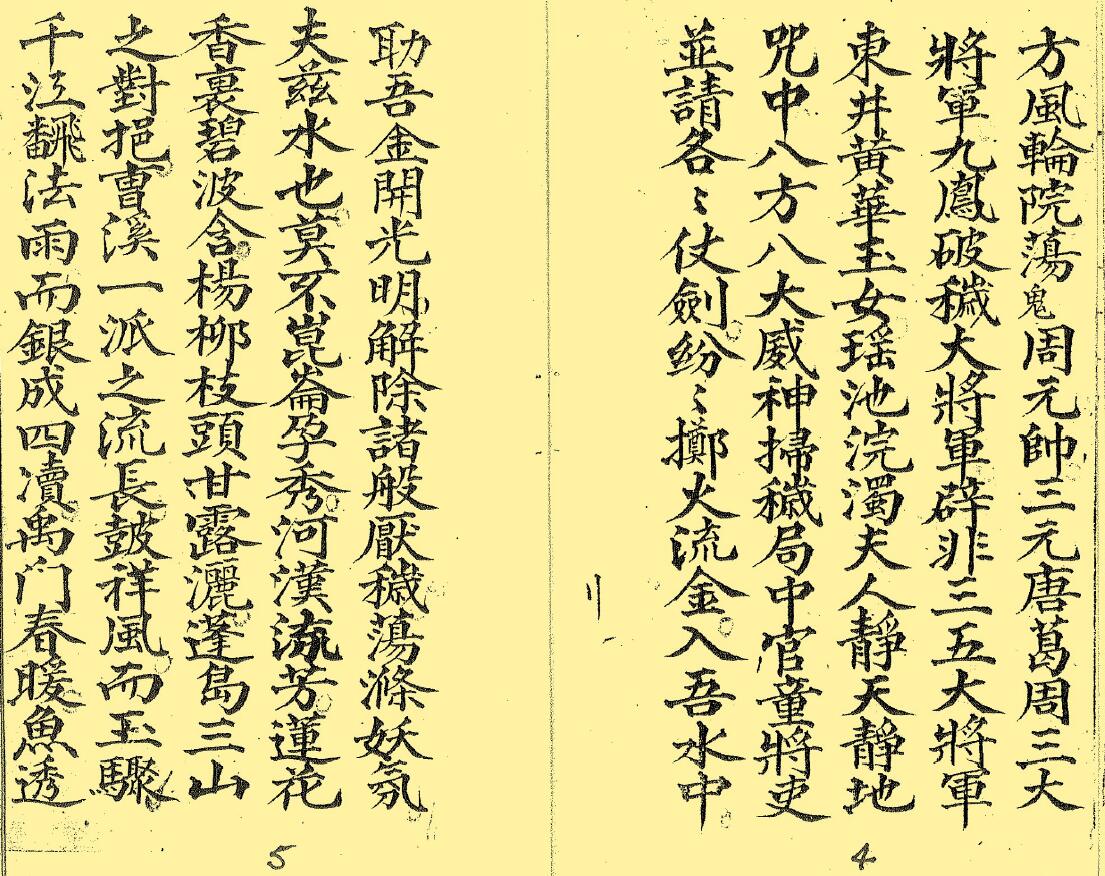 方風輪院蕩鬼周元帥三元唐葛周三大
將軍九鳳破穢大將軍辟非三五大將軍
東井黃華玉女瑶池浣濁夫人靜天靜地
咒中八方八大威神掃穢局中官童將吏
並請各〻仗劍紛〻擲火流金入吾水中
4
助吾金開光明解除諸般厭穢蕩滌妖氛
夫茲水也莫不崑崙孕秀河漢流芳蓮花
香裏碧波含楊柳枝頭甘露灑蓬島三山
之對挹曹溪一派之流長鼓祥風而玉驟
千江飜法雨而銀成四瀆禹门春暖魚透
5